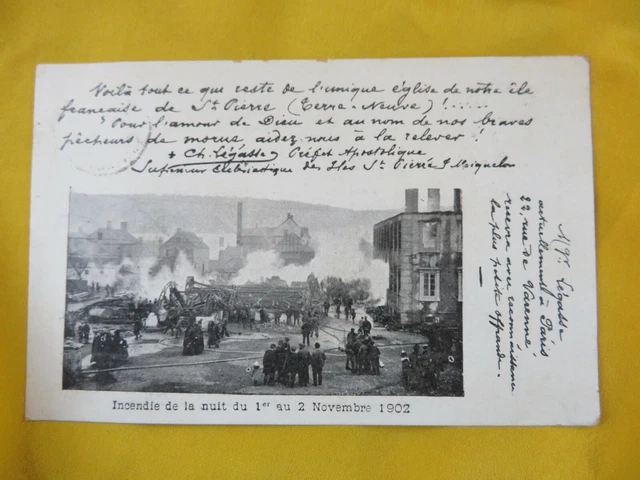 Voilà tout ce que reste de l'unique église de notre île
française de St Pierre (Terre-Neuve)!.....
Pour l'amour de Dieu et au nom de nos braves
pêcheurs de morue aidez nous à la relever!
+ Ch. Légasse, Préfet Apostolique
Supérieur Ecclésiastique des Iles St Pierre & Miquelon
Incendie de la nuit du 1er au 2 Novembre 1902
Mgr. Légasse
actuellement à Paris
22, rue de Varenne,
recevra avec reconnaissance
la plus petite offrande.